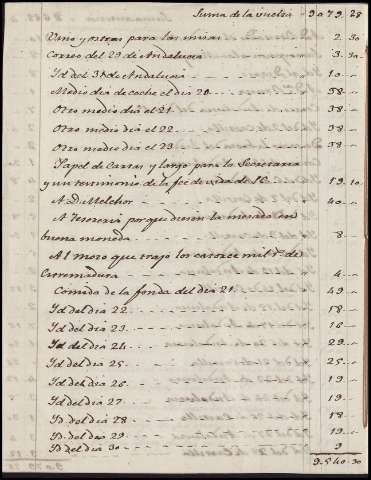 Suma de la vuelta - 9079.. 28
Vino y ostras para las misas - 2.. 30
Correo del 29 de Andalucia - 3.. 30
Yd del 31 de Andalucia - 10 -
Medio dia de coche el dia 20 - 38 -
Otro medio dia el 21 - 38 -
Otro medio dia el 22 - 38 -
Otro medio dia el 23 - 38 -
Papel de Cartas y largo para la Secretaria
y un testimonio de la fee de vida de S.E. - 19.. 10
A D. Melchor - 40 -
A Tesoreria porque diesen la mesada en
buena moneda - 8 -
Al mozo que trajo los catorce mil r.s de
Extremadura - 4 -
Comida de la fonda del dia 21 - 49 -
Yd del dia 22 - 18 -
Yd del dia 23 - 16 -
Yd del dia 24 - 29 -
Yd del dia 25 - 25 -
Yd del dia 26 - 19 -
Yd del dia 27 - 19 -
Yd. del dia 28 - 18
Yd. del dia 29 - 19 -
Yd. del dia 30 - 9
9.540.. 30